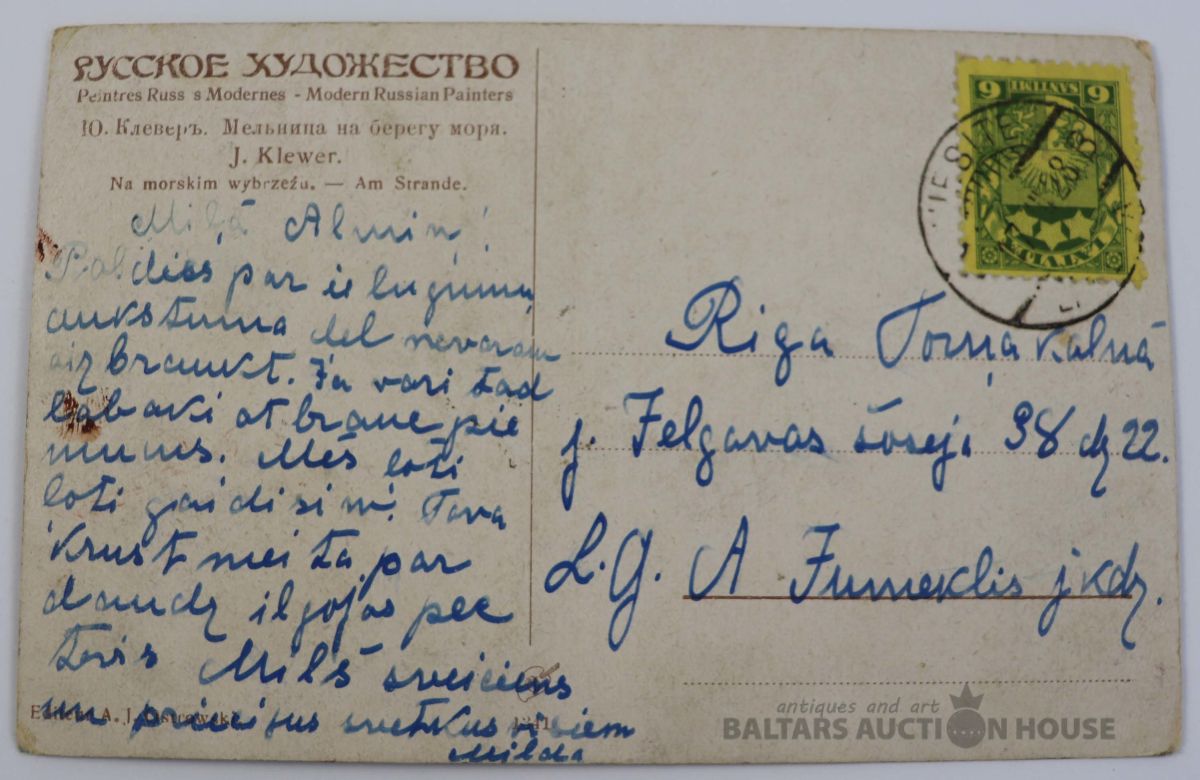 РУССКОЕ ХУДОЖЕСТВО
Peintres Russ s Modernes - Modern Russian Painters
Ю. Клеверъ. Мельница на берегу моря.
J. Klewer.
Na morskim wybrzeżu. — Am Strande.
Miļā Almiņ!
Paldies par ielugumu
aukstuma del nevaram
aizbraukt. Ja vari tad
labaki atbrauc pie
mums. Mēs loti
loti gaidisim. Tava
krustmeita par
daudz ilgojas pec
tevis Milš sveiciens
un priecigus svetkus visiem
Milda
Editeur A. J. Ostrowski
1241
6 SANTIMI 6
LATVIJA
Riga Torņakalnā
j. Jelgavas šosejā 38 dz 22.
L. G. A Jumeklis jkdz.
antiques and art
BALTARS AUCTION HOUSE